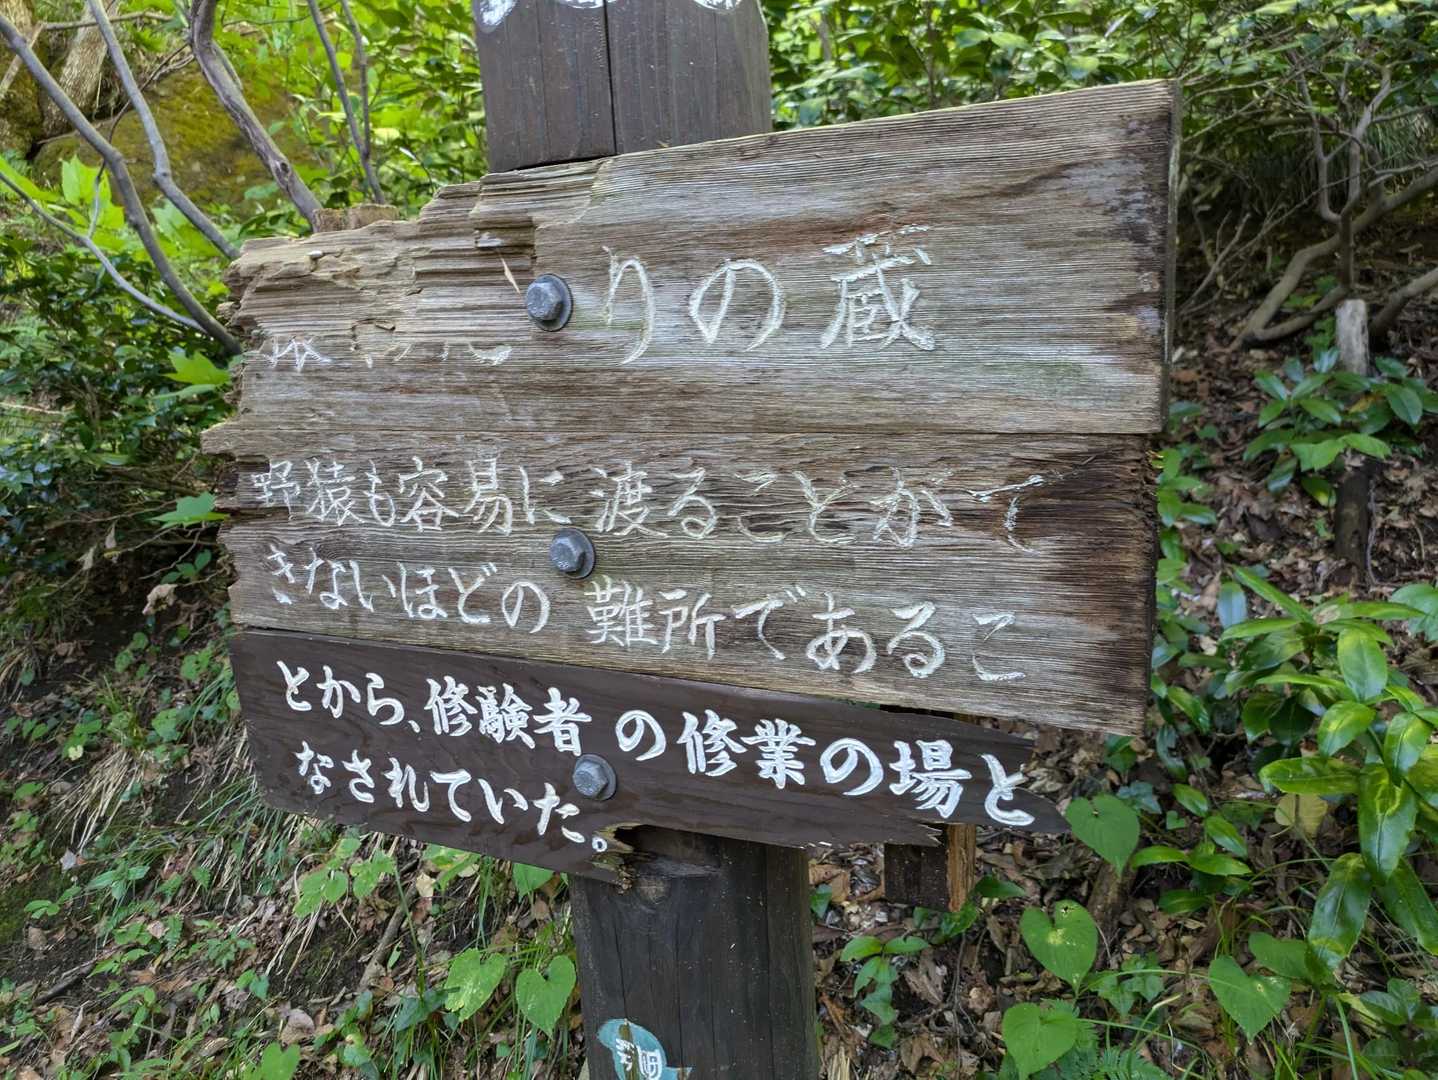 りの蔵
野猿も容易に渡ることがて
きないほどの難所であるこ
とから、修験者の修業の場と
なされていた。